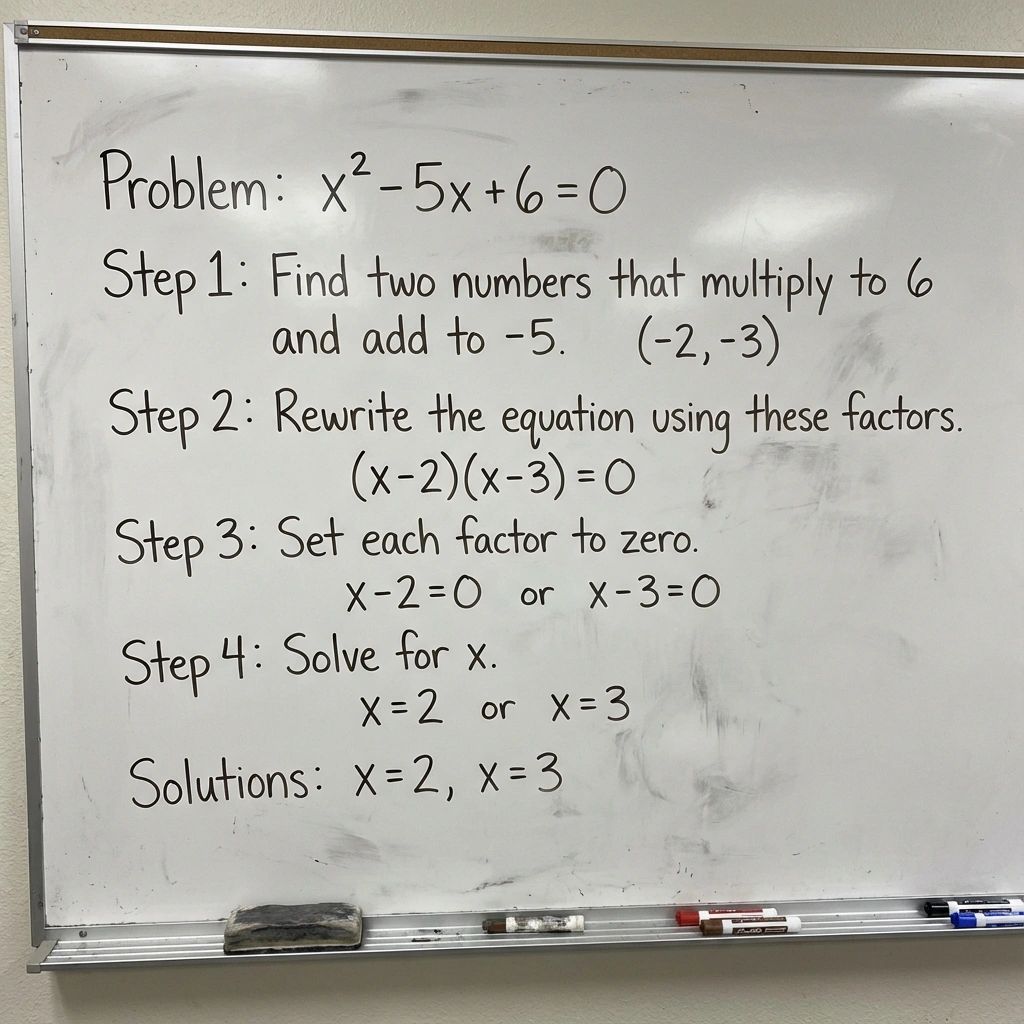 Problem: x² - 5x + 6 = 0
Step 1: Find two numbers that multiply to 6
and add to -5. (-2, -3)
Step 2: Rewrite the equation using these factors.
(x-2)(x-3) = 0
Step 3: Set each factor to zero.
x-2=0 or x-3=0
Step 4: Solve for x.
x=2 or x=3
Solutions: x=2, x=3